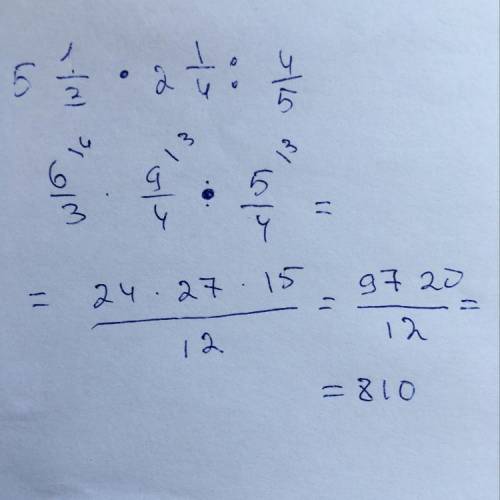 5 1/3 · 2 1/4 : 4/5
6/3 \4 · 9/4 \3 · 5/4 \3 =
= 24 · 27 · 15/12 = 9720/12 =
= 810